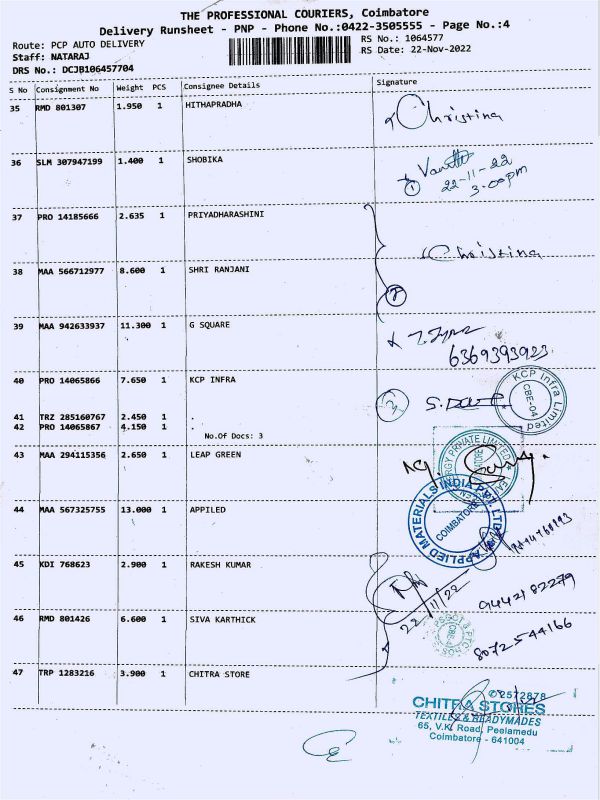 THE PROFESSIONAL COURIERS, Coimbatore
Delivery Runsheet - PNP - Phone No.:0422-3505555 - Page No.:4
Route: PCP AUTO DELIVERY
RS No.: 1064577
Staff: NATARAJ
RS Date: 22-Nov-2022
DRS No.: DCJB106457704
S No Consignment No Weight PCS Consignee Details Signature
35 RMD 801307 1.950 1 HITHAPRADHA
Christina
36 SLM 307947199 1.400 1 SHOBIKA
22-11-22
3.00pm
37 PRO 14185666 2.635 1 PRIYADHARASHINI
Christina
38 MAA 566712977 8.600 1 SHRI RANJANI
39 MAA 942633937 11.300 1 G SQUARE
6369393923
40 PRO 14065866 7.650 1 KCP INFRA
KCP Infra Limited
CBE-04
41 TRZ 285160767 2.450 1 .
42 PRO 14065867 4.150 1 .
No.Of Docs: 3
43 MAA 294115356 2.650 1 LEAP GREEN
44 MAA 567325755 13.000 1 APPILED
APPLIED MATERIALS INDIA PVT. LTD
COIMBATORE
45 KDI 768623 2.900 1 RAKESH KUMAR
22/11/22
9442182279
46 RMD 801426 6.600 1 SIVA KARTHICK
8072544166
47 TRP 1283216 3.900 1 CHITRA STORE
✆2572878
CHITRA STORES
TEXTILES & READYMADES
65, V.K. Road, Peelamedu
Coimbatore - 641004